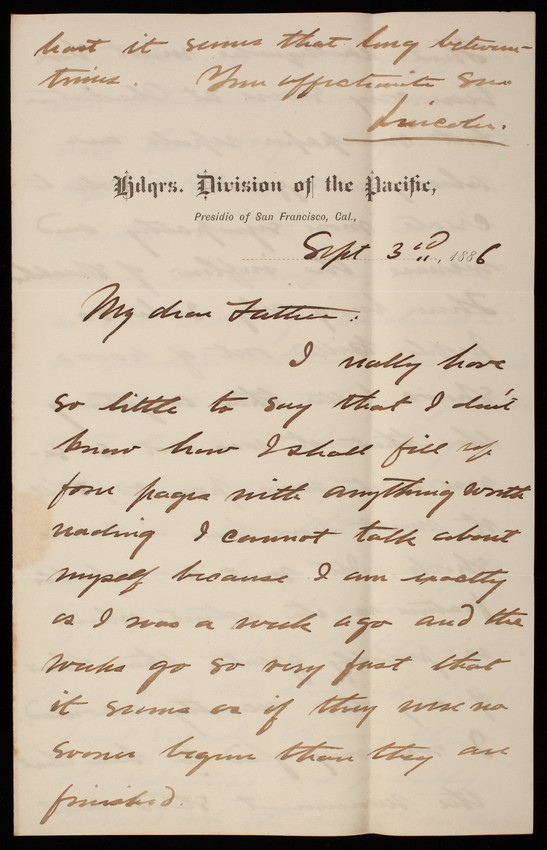 least it seems that long between
times. Your affectionate Son
Lincoln.
Hdqrs. Division of the Pacific,
Presidio of San Francisco, Cal.,
Sept 3rd, 1886
My dear Father:
I really have
so little to say that I don't
know how I shall fill up
four pages with anything worth
reading I cannot talk about
myself because I am exactly
as I was a week ago and the
weeks go so very fast that
it seems as if they were no
sooner begun than they are
finished.